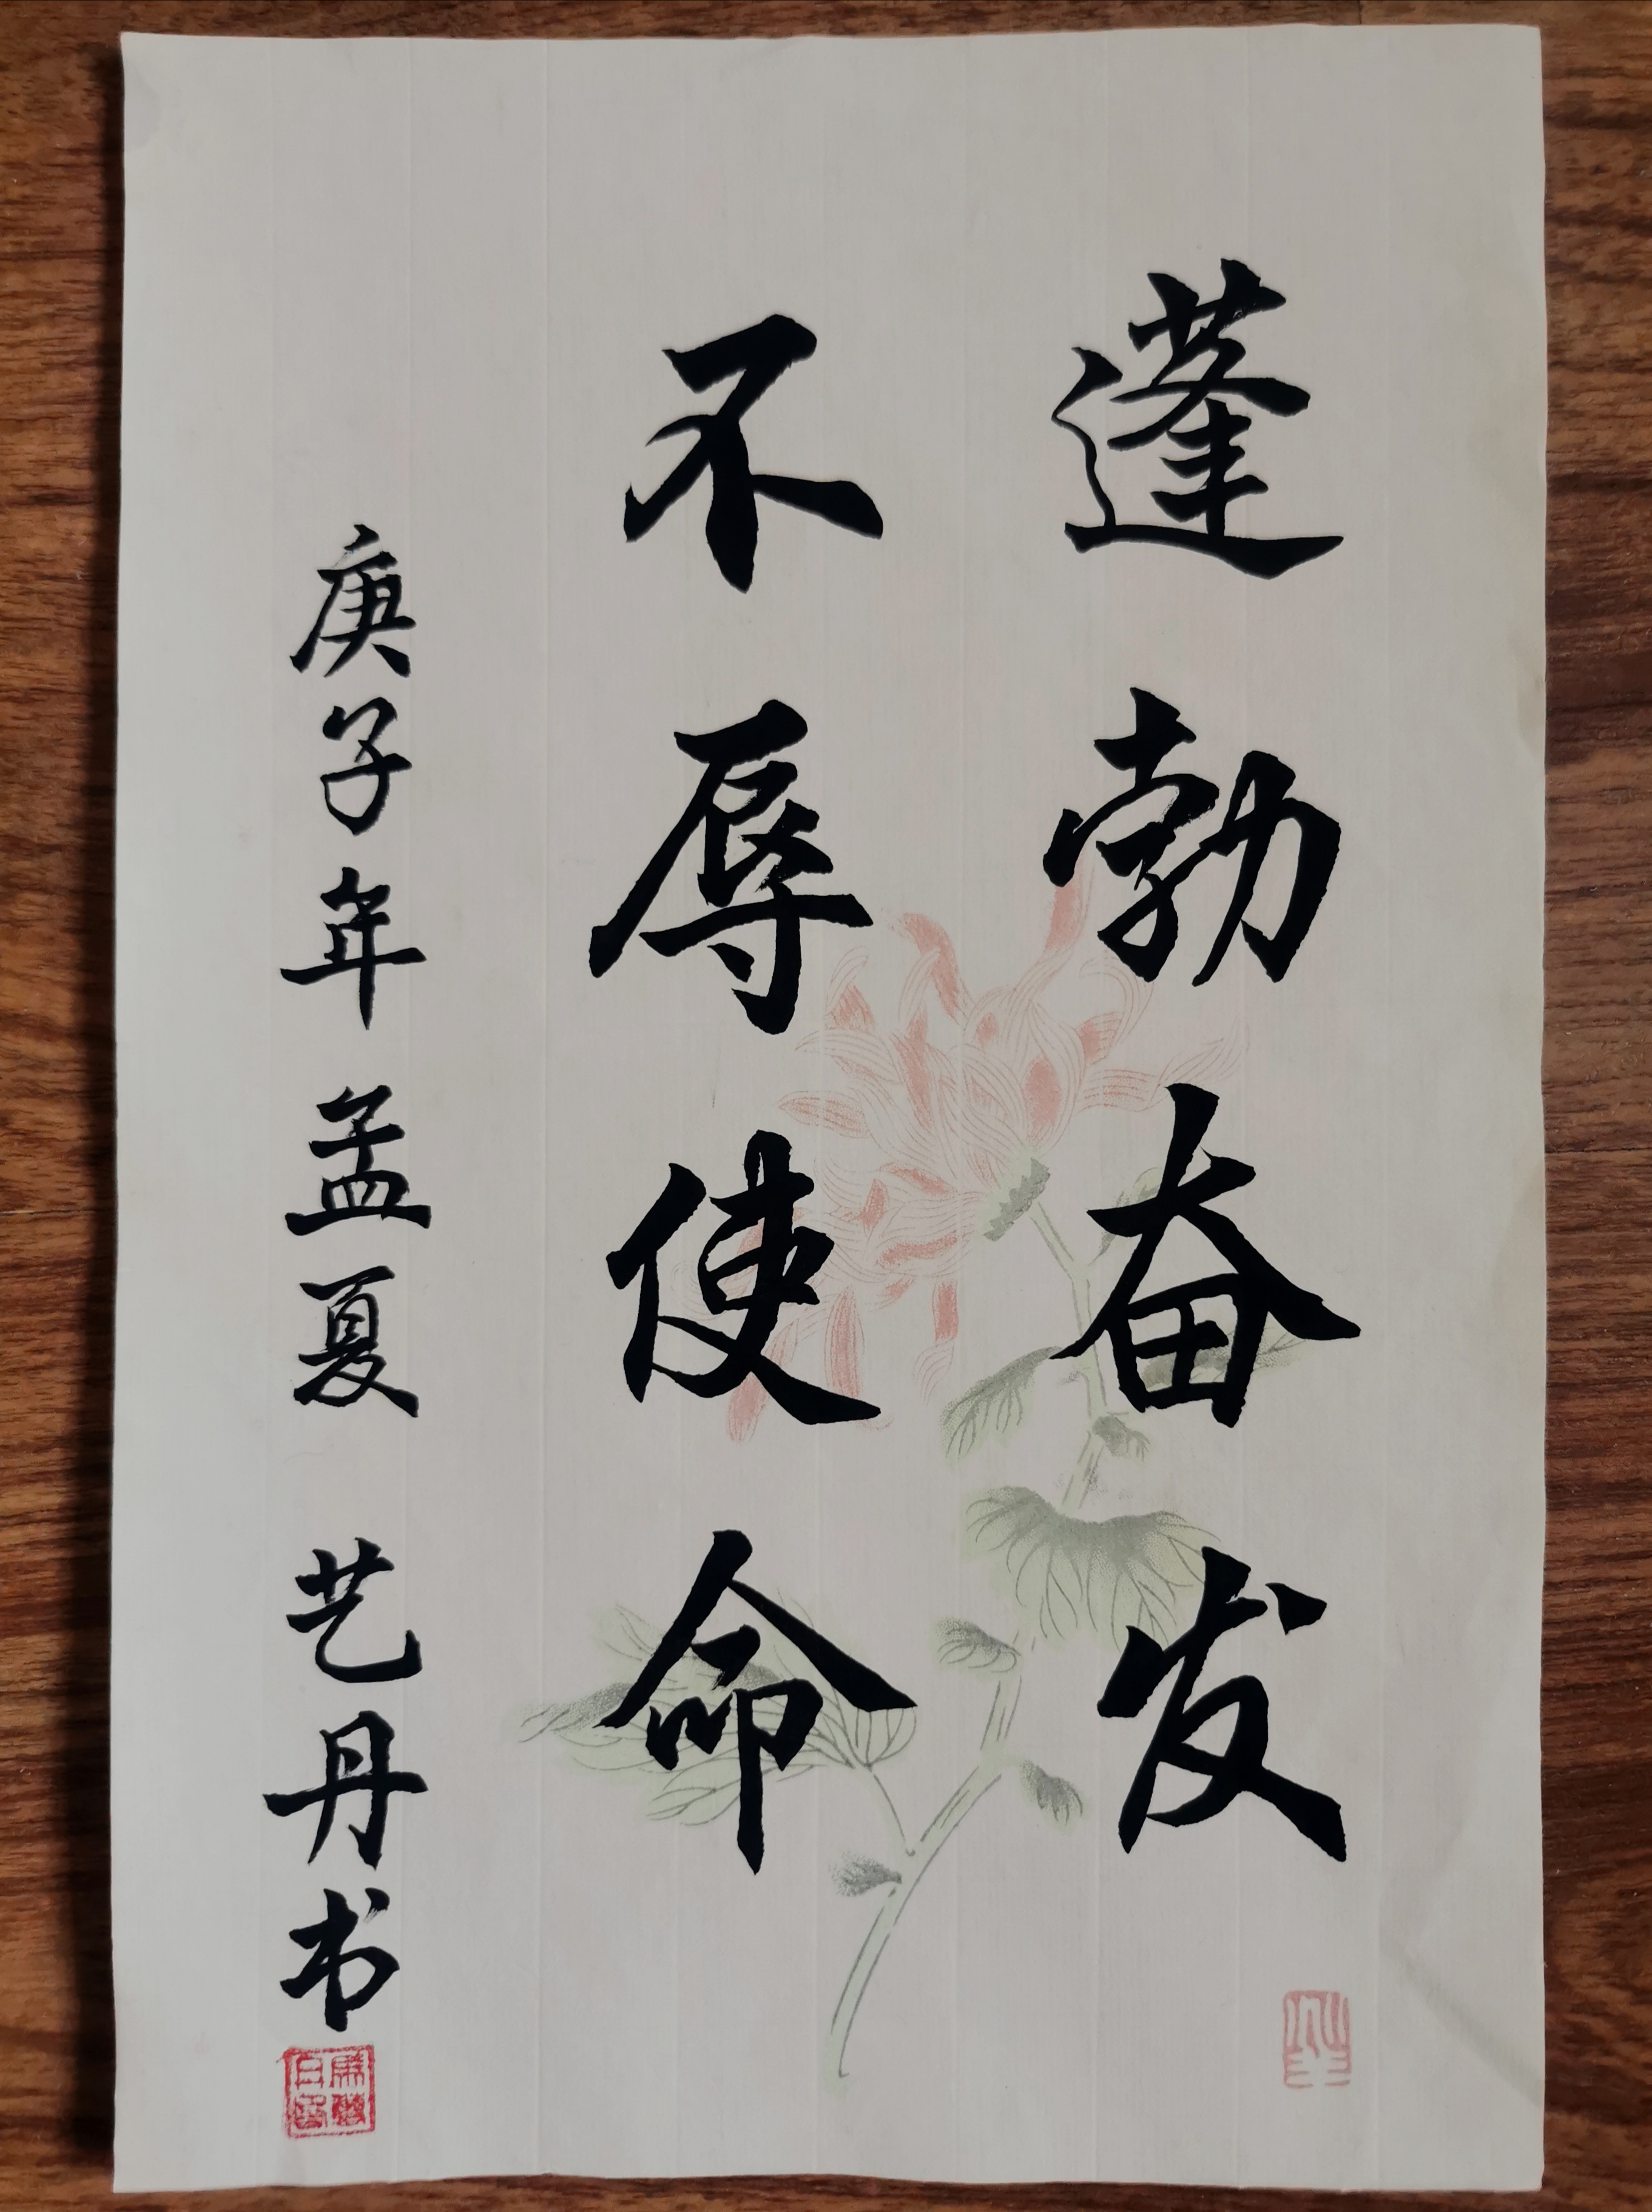 蓬勃奋发
不辱使命
庚子年孟夏 艺丹书